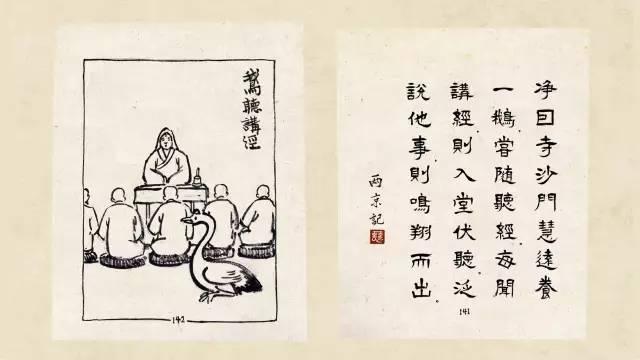 净因寺沙門慧遠養
一鵝嘗隨聽經每聞
講經則入堂伏聽泛
說他事則鳴翔而出。
兩京記
141
鵝聽講經
142